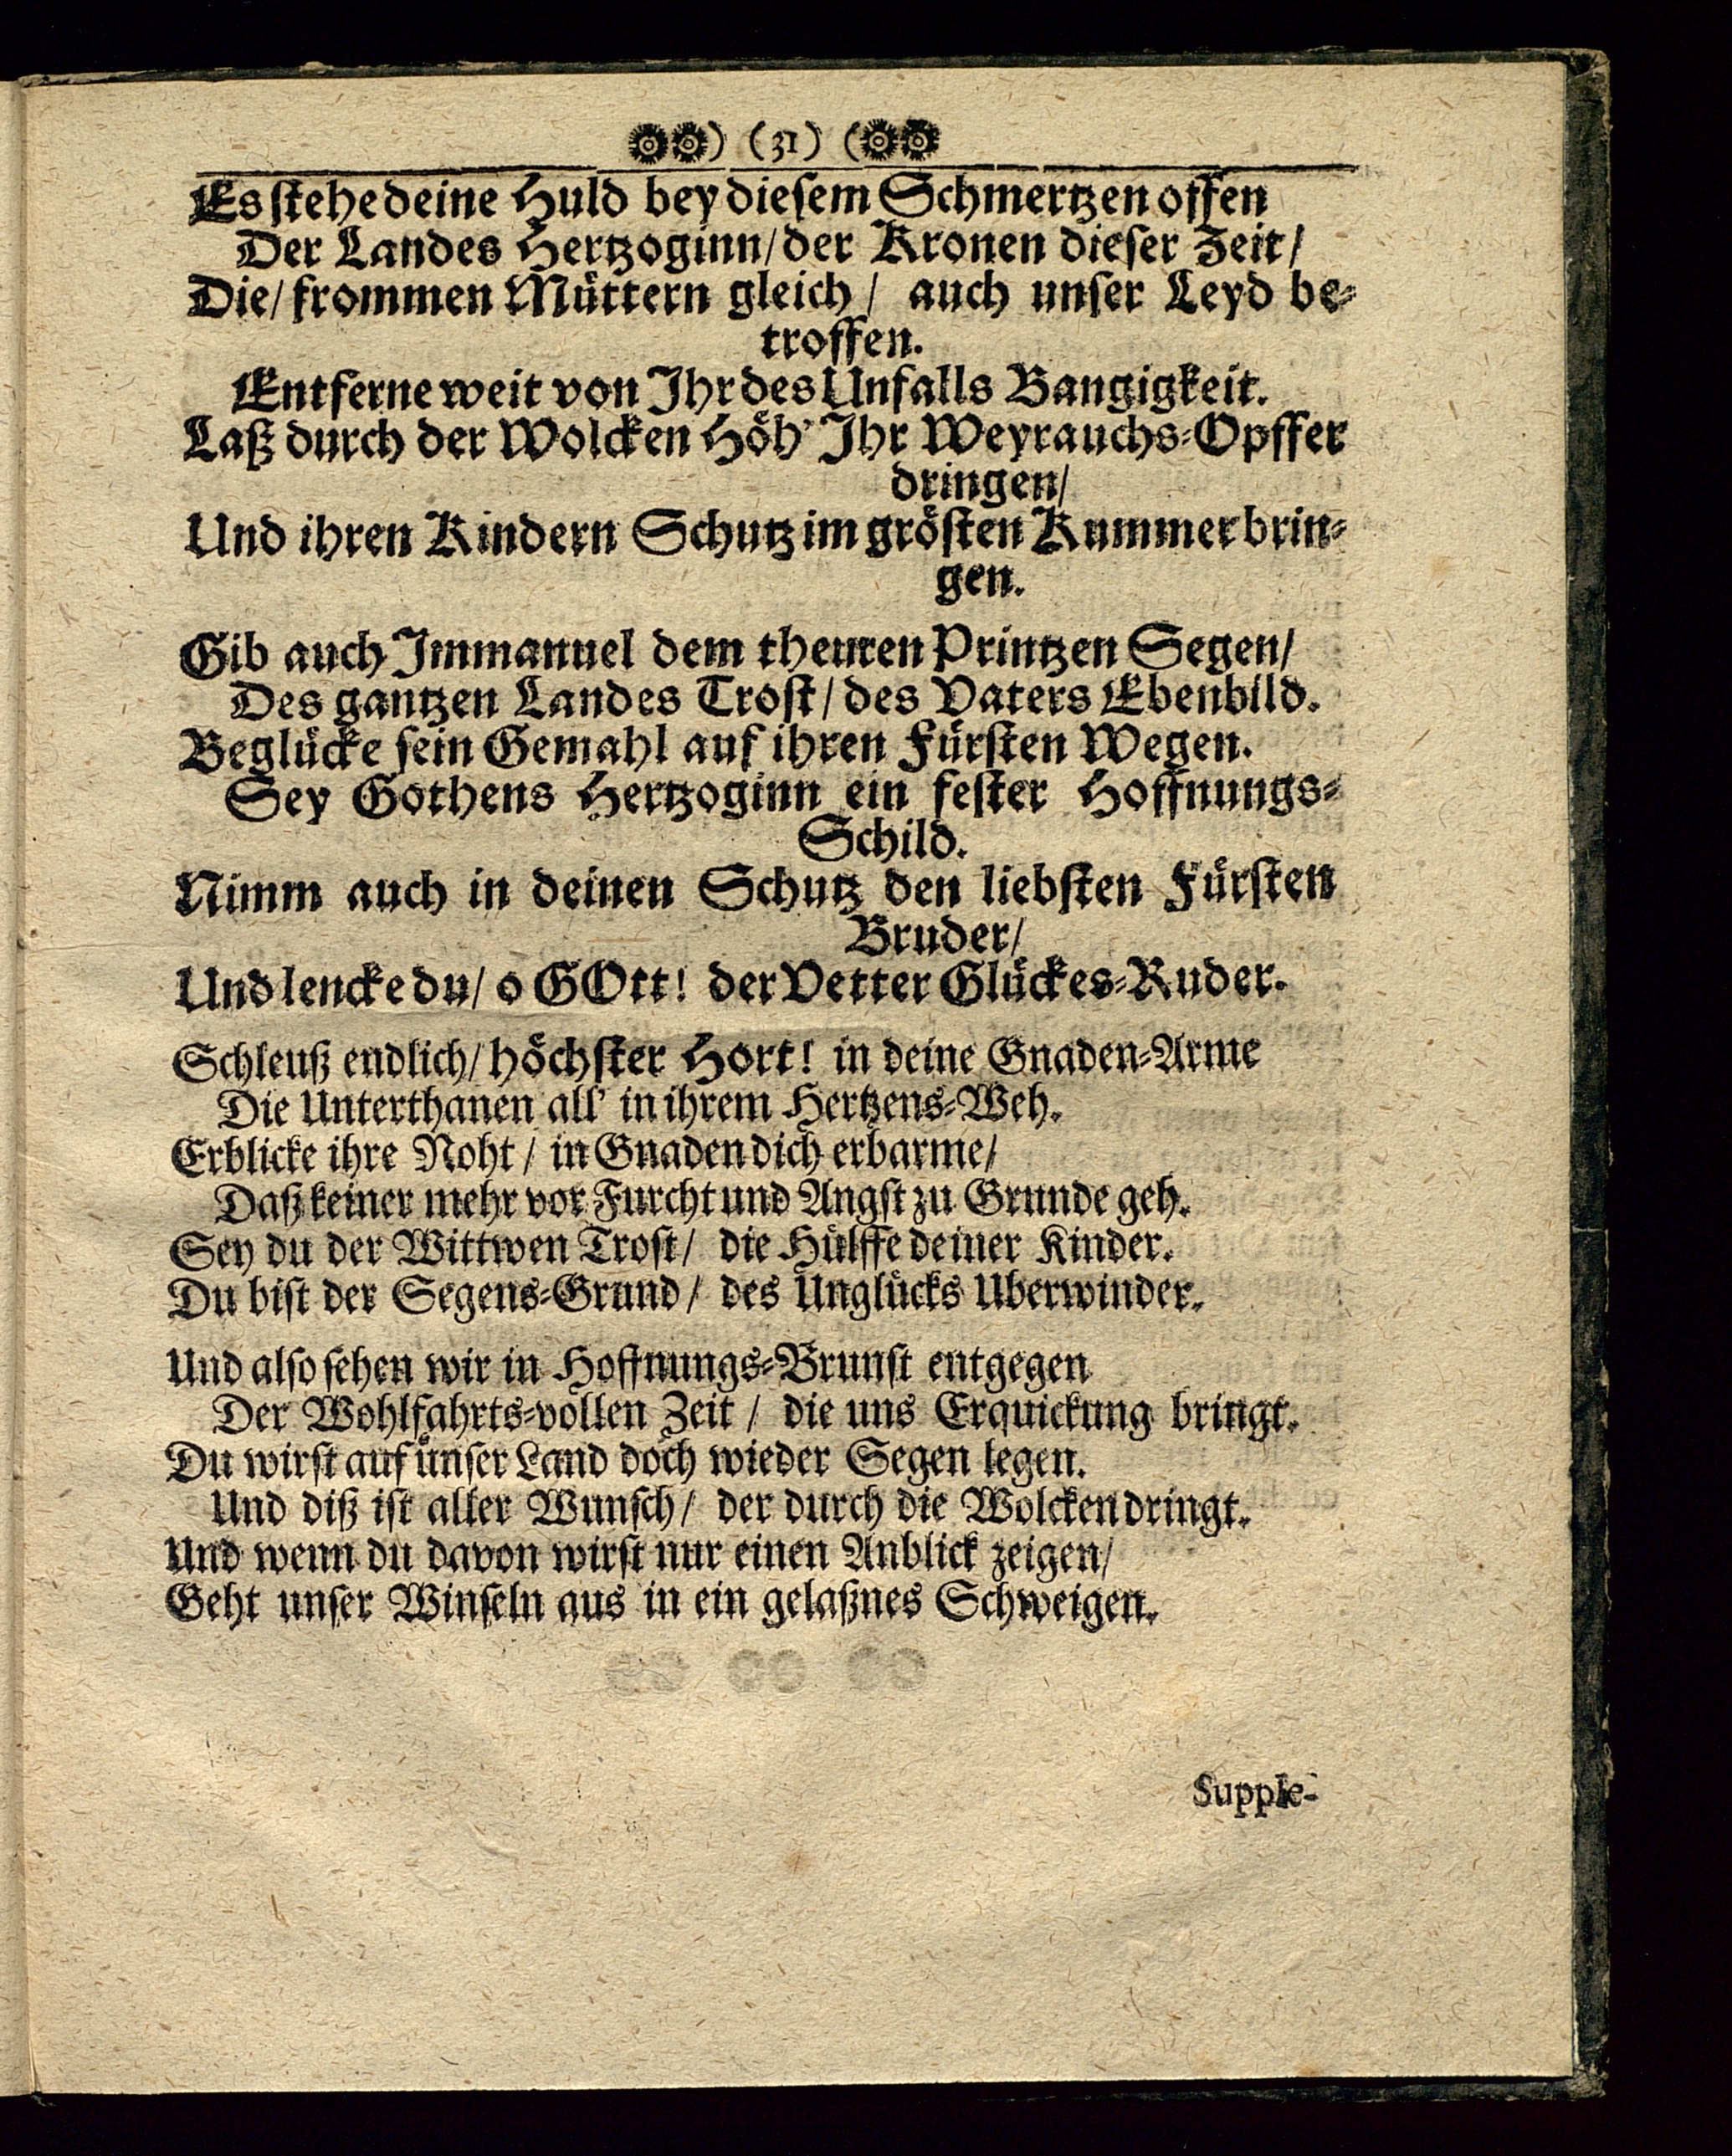 ) (31) (
Es stehe deine Huld bey diesem Schmertzen offen
Der Landes Hertzoginn/ der Kronen dieser Zeit/
Die/ frommen Müttern gleich/ auch unser Leyd be-
troffen.
Entferne weit von Jhr des Unfalls Bangigkeit.
Laß durch der Wolcken Höh' Jhr Weyrauchs-Opffer
dringen/
Und ihren Kindern Schutz im grösten Kummer brin-
gen.
Gib auch Jmmanuel dem theuren Printzen Segen/
Des gantzen Landes Trost/ des Vaters Ebenbild.
Beglücke sein Gemahl auf ihren Fürsten Wegen.
Sey Gothens Hertzoginn ein fester Hoffnungs-
Schild.
Nimm auch in deinen Schutz den liebsten Fürsten
Bruder/
Und lencke du/ o GOtt! der Vetter Glückes-Ruder.
Schleuß endlich/ höchster Hort! in deine Gnaden-Arme
Die Unterthanen all' in ihrem Hertzens-Weh.
Erblicke ihre Noht/ in Gnaden dich erbarme/
Daß keiner mehr vor Furcht und Angst zu Grunde geh.
Sey du der Wittwen Trost/ die Hülffe deiner Kinder.
Du bist der Segens-Grund/ des Unglücks Uberwinder.
Und also sehen wir in Hoffnungs-Brunst entgegen
Der Wohlfahrts-vollen Zeit/ die uns Erquickung bringt.
Du wirst auf unser Land doch wieder Segen legen.
Und diß ist aller Wunsch/ der durch die Wolcken dringt.
Und wenn du davon wirst nur einen Anblick zeigen/
Geht unser Winseln aus in ein gelaßnes Schweigen.
Supple-